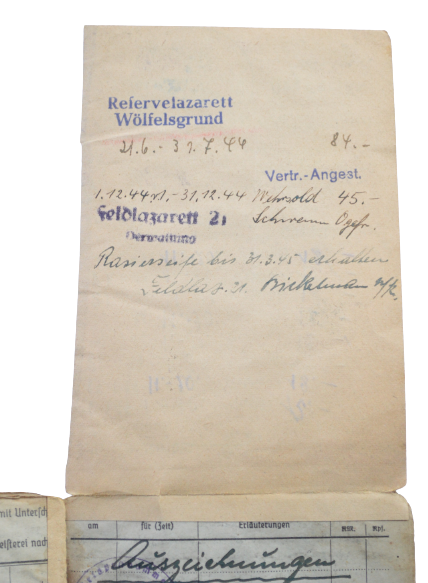 Reservelazarett
Wölfelsgrund
21.6.- 31.7.44 84.-
Vertr.-Angest.
1.12.44 - 31.12.44 Wehrsold 45.-
Feldlazarett 21
Verwaltung
Schramm Ogefr.
Rasierseife bis 31.3.45 erhalten
Feldlaz. 21.
mit Untersch
am für (Zeit) Erläuterungen RM. Rpf.
eisterei nach
Auszeichnungen